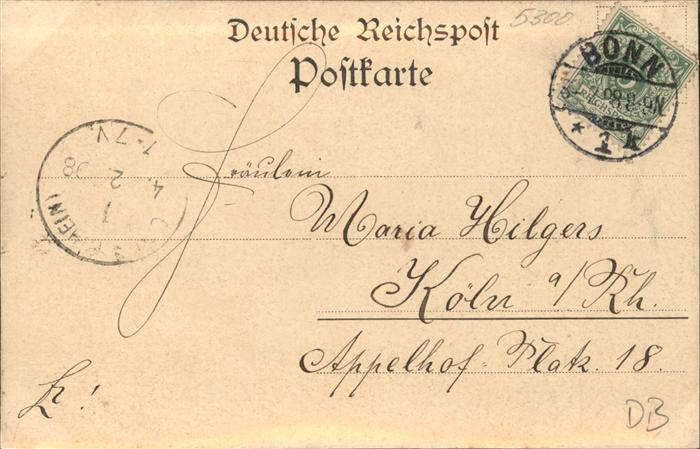 5300
Deutsche Reichspost
Postkarte
BONN
8-9N
* 1 k
REICHSPOST
4. 2. 98
7-7V
1
(RHEIN)
Fräulein
Maria Hilgers
Köln a/Rh.
Appelhof-Platz. 18.
DB